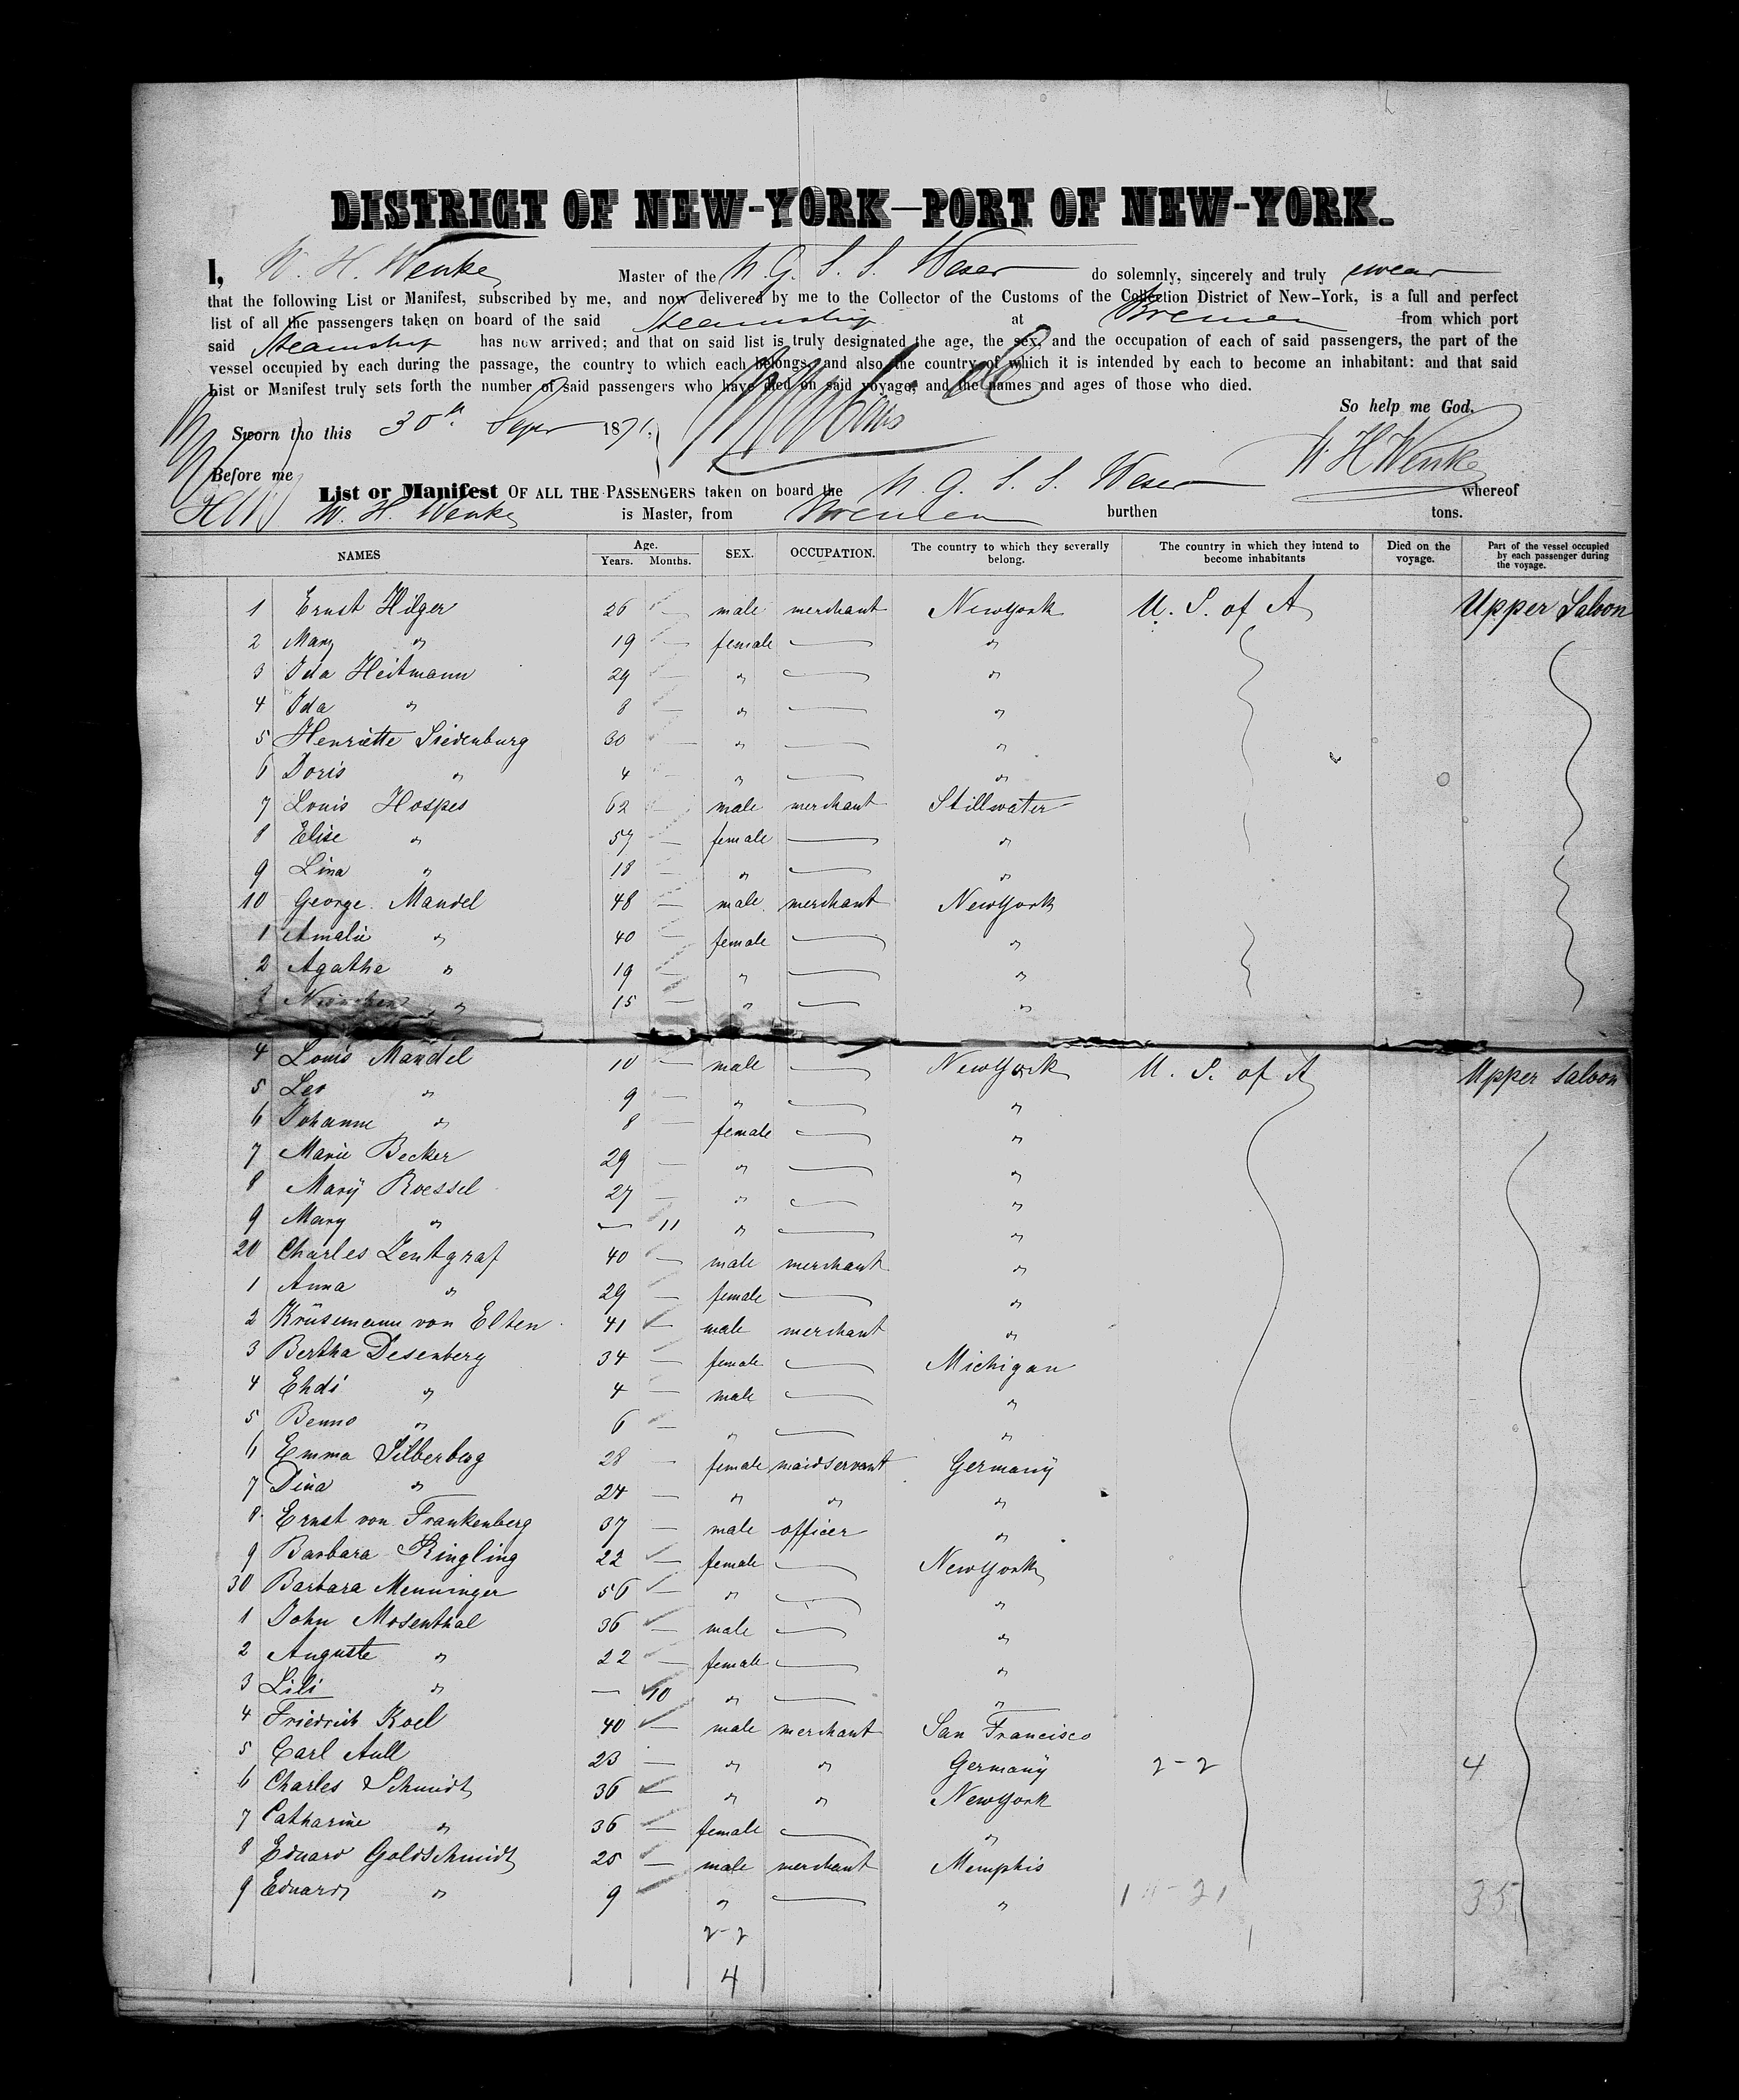 DISTRICT OF NEW-YORK—PORT OF NEW-YORK.
I, W. H. Wenke Master of the N. G. S. S. Weser do solemnly, sincerely and truly swear
that the following List or Manifest, subscribed by me, and now delivered by me to the Collector of the Customs of the Collection District of New-York, is a full and perfect
list of all the passengers taken on board of the said Steamship at Bremen from which port
said Steamship has now arrived; and that on said list is truly designated the age, the sex, and the occupation of each of said passengers, the part of the
vessel occupied by each during the passage, the country to which each belongs, and also the country of which it is intended by each to become an inhabitant: and that said
List or Manifest truly sets forth the number of said passengers who have died on said voyage, and the names and ages of those who died.
So help me God.
Sworn tho this 30th Sepr 1871.
W. H. Wenke
Before me
List or Manifest OF ALL THE PASSENGERS taken on board the N. G. S. S. Weser whereof
W. H. Wenke is Master, from Bremen burthen tons.
NAMES Age. Years. Months. SEX. OCCUPATION. The country to which they severally belong. The country in which they intend to become inhabitants Died on the voyage. Part of the vessel occupied by each passenger during the voyage.
1 Ernst Hilger 26 — male merchant NewYork U. S. of A Upper Saloon
2 Mary " 19 — female — "
3 Ida Heitmann 29 — " — "
4 Ida " 8 — " — "
5 Henriette Siedenburg 30 — " — "
6 Doris " 4 — " — "
7 Louis Hospes 62 — male merchant Stillwater
8 Elise " 57 — female — "
9 Lina " 18 — " — "
10 George Mandel 48 — male merchant NewYork
1 Amalie " 40 — female — "
2 Agatha " 19 — " — "
" 15 — " — "
4 Louis Mandel 10 — male — NewYork U. S. of A Upper Saloon
5 Leo " 9 — " — "
6 Johanne " 8 — female — "
7 Marie Becker 29 — " — "
8 Marÿ Roessel 27 — " — "
9 Mary " — 11 " — "
20 Charles Zentgraf 40 — male merchant "
1 Anna " 29 — female — "
2 Krüsemann von Elten 41 — male merchant "
3 Bertha Desenberg 34 — female — Michigan
4 Ehdi " 4 — male — "
5 Benno " 6 — " — "
6 Emma Silberberg 28 — female maidservant Germanÿ
7 Dina " 24 — " " "
8 Ernst von Frankenberg 37 — male officer "
9 Barbara Ringling 22 — female — NewYork
30 Barbara Menninger 56 — " — "
1 John Mosenthal 36 — male — "
2 Auguste " 22 — female — "
3 Lili " — 10 " — "
4 Friedrich Koel 40 — male merchant San Francisco
5 Carl Aull 23 — " " Germanÿ 2-2 4
6 Charles Schmidt 36 — " " NewYork
7 Catharine " 36 — female — "
8 Eduard Goldschmidt 25 — male merchant Memphis
9 Eduard " 9 — " — " 35
2-2
4